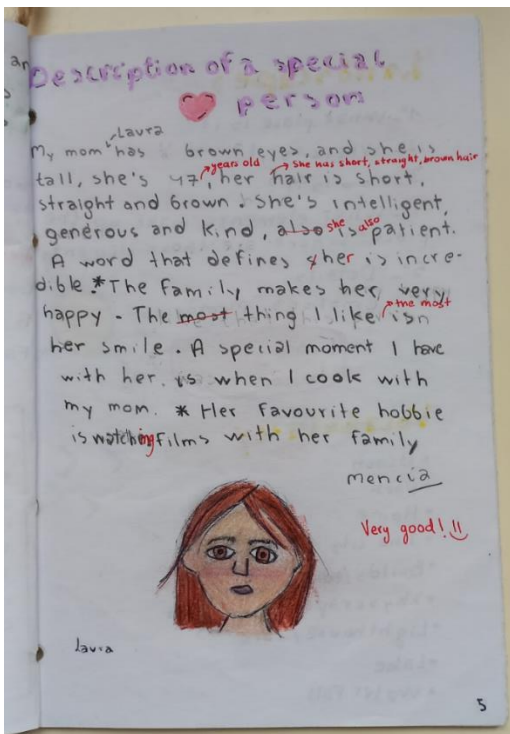 an
Description of a special
person
Laura
My mom has brown eyes, and she is
years old
she has short, straight, brown hair
tall, she's 47, her hair is short,
straight and brown. She's intelligent,
generous and kind, also she is also patient.
A word that defines her is incre-
dible.*The family makes her very
the most
happy. The most thing I like is
her smile. A special moment I have
with her, is when I cook with
my mom. * Her favourite hobbie
is watching films with her family
Mencía
Very good!
Laura
5